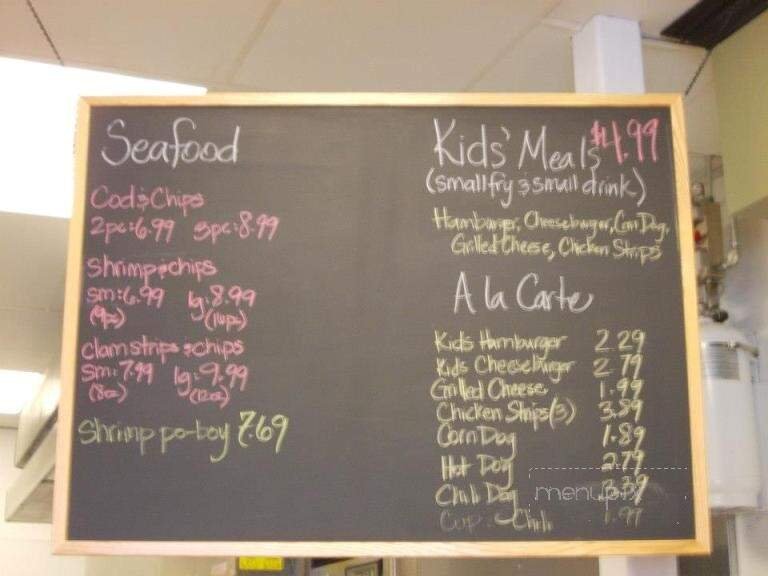 Seafood
Cod & Chips
2pc: 6.99 3pc: 8.99
Shrimp & chips
sm: 6.99 lg: 8.99
(9pc) (16pc)
clam strips & chips
sm: 7.99 lg: 9.99
(8oz) (12oz)
Shrimp po-boy 7.69
Kids' Meals $4.99
(small fry & small drink)
Hamburger, Cheeseburger, Corn Dog,
Grilled Cheese, Chicken Strips
A la Carte
Kids Hamburger 2.29
Kids Cheeseburger 2.79
Grilled Cheese 1.99
Chicken Strips (3) 3.89
Corn Dog 1.89
Hot Dog 2.79
Chili Dog 3.39
Cup Chili 1.99
menupix